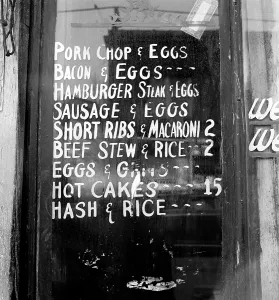 PORK CHOP & EGGS
BACON & EGGS ---
HAMBURGER STEAK & EGGS
SAUSAGE & EGGS
SHORT RIBS & MACARONI 2
BEEF STEW & RICE -- 2
EGGS & GRITS ---
HOT CAKES ---- 15
HASH & RICE ---
We
We